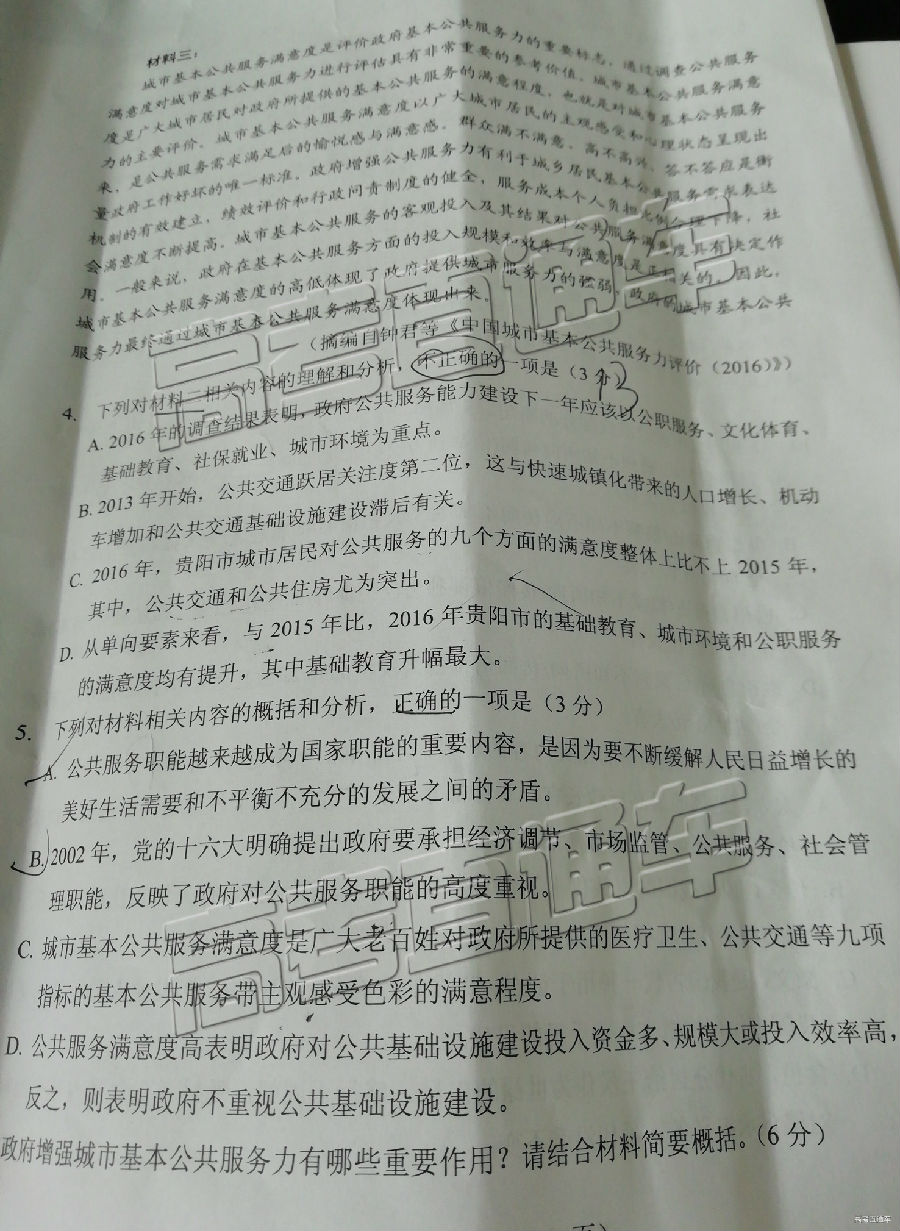 材料三：
城市基本公共服务满意度是评价政府基本公共服务力的重要标志，通过调查公共服务
满意度对城市基本公共服务力进行评估具有非常重要的参考价值。城市基本公共服务满意
度是广大城市居民对政府所提供的基本公共服务的满意程度，也就是对城市基本公共服务
力的主要评价。城市基本公共服务满意度以广大城市居民的主观感受和心理状态呈现出
来，是公共服务需求满足后的愉悦感与满意感。群众满不满意、高不高兴、答不答应是衡
量政府工作好坏的唯一标准。政府增强公共服务力有利于城乡居民基本公共服务需求表达
机制的有效建立，绩效评价和行政问责制度的健全，服务成本个人负担比例合理下降，社
会满意度不断提高。城市基本公共服务的客观投入及其结果对公共服务满意度具有决定作
用。一般来说，政府在基本公共服务方面的投入规模和效率与满意度是正相关的。因此，
城市基本公共服务满意度的高低体现了政府提供城市服务力的强弱，政府的城市基本公共
服务力最终通过城市基本公共服务满意度体现出来。
（摘编自钟君等《中国城市基本公共服务力评价（2016）》）
4. 下列对材料二相关内容的理解和分析，不正确的一项是（3分）
A. 2016年的调查结果表明，政府公共服务能力建设下一年应该以公职服务、文化体育、
基础教育、社保就业、城市环境为重点。
B. 2013年开始，公共交通跃居关注度第二位，这与快速城镇化带来的人口增长、机动
车增加和公共交通基础设施建设滞后有关。
C. 2016年，贵阳市城市居民对公共服务的九个方面的满意度整体上比不上2015年，
其中，公共交通和公共住房尤为突出。
D. 从单向要素来看，与2015年比，2016年贵阳市的基础教育、城市环境和公职服务
的满意度均有提升，其中基础教育升幅最大。
5. 下列对材料相关内容的概括和分析，正确的一项是（3分）
A. 公共服务职能越来越成为国家职能的重要内容，是因为要不断缓解人民日益增长的
美好生活需要和不平衡不充分的发展之间的矛盾。
B. 2002年，党的十六大明确提出政府要承担经济调节、市场监管、公共服务、社会管
理职能，反映了政府对公共服务职能的高度重视。
C. 城市基本公共服务满意度是广大老百姓对政府所提供的医疗卫生、公共交通等九项
指标的基本公共服务带主观感受色彩的满意程度。
D. 公共服务满意度高表明政府对公共基础设施建设投入资金多、规模大或投入效率高，
反之，则表明政府不重视公共基础设施建设。
政府增强城市基本公共服务力有哪些重要作用？请结合材料简要概括。（6分）
高考直通车
高考直通车
高考直通车